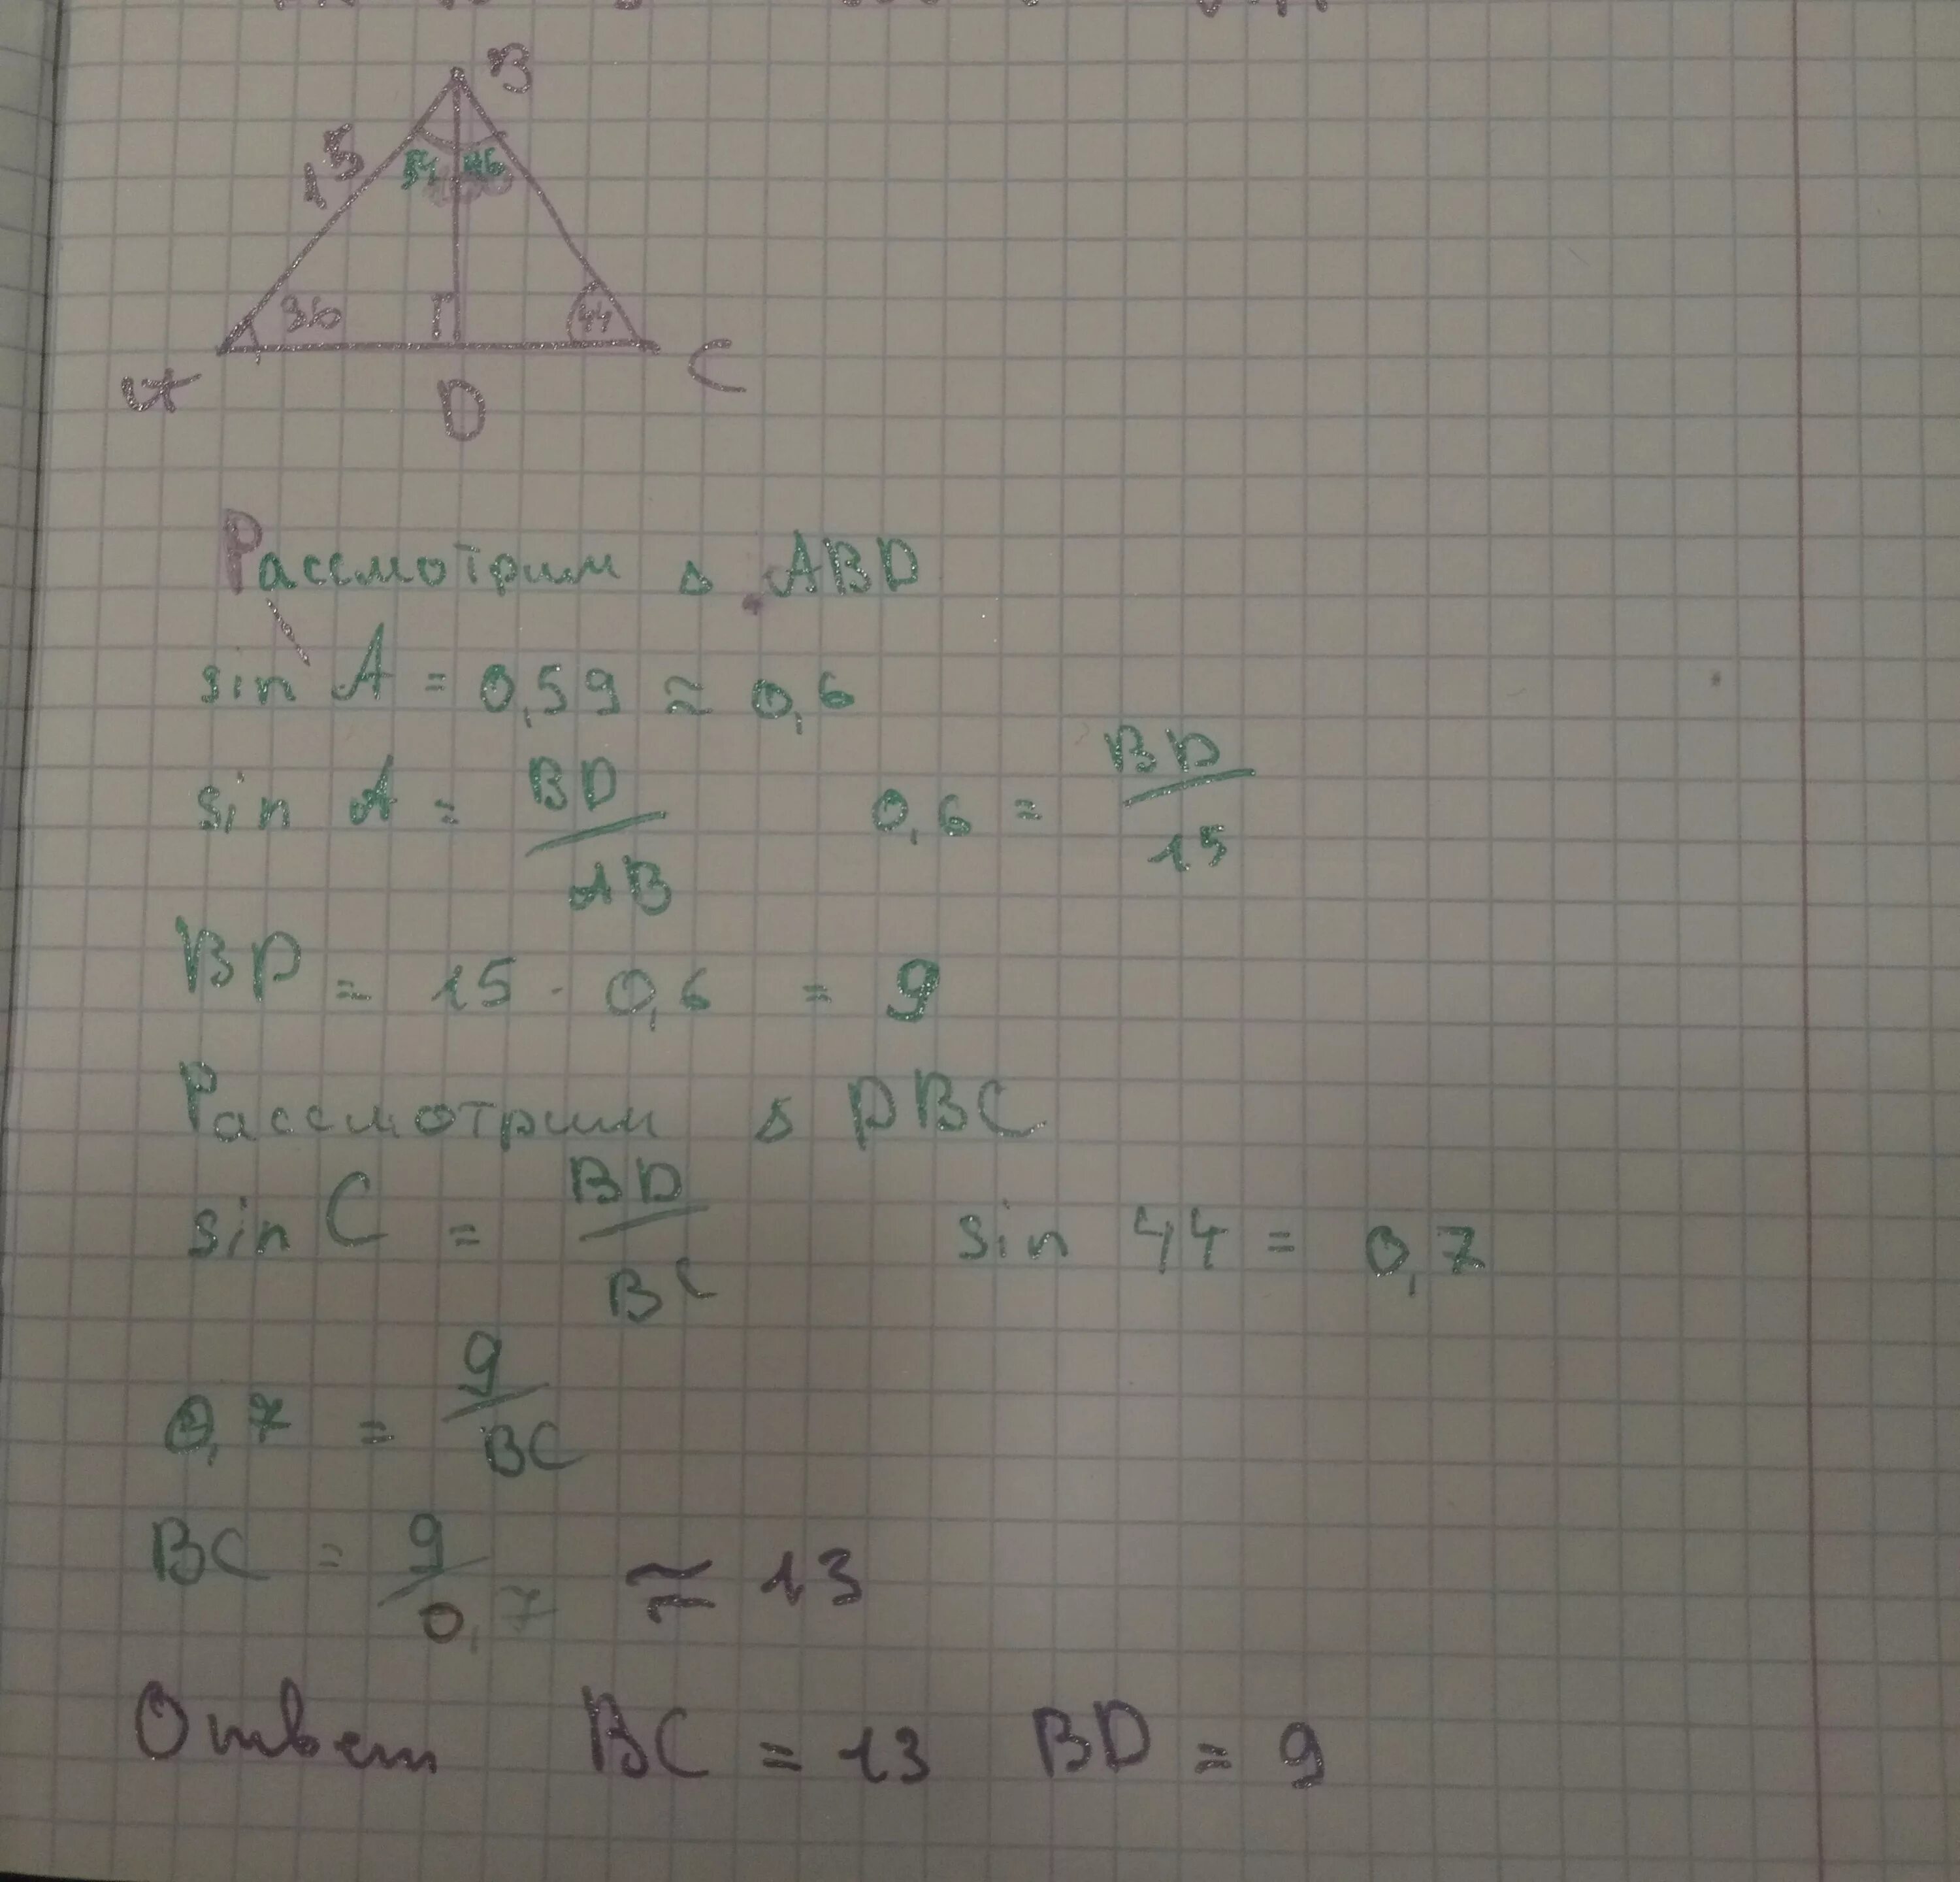 B
15
54 46
36
44
A
D
C
Рассмотрим Δ ABD
sin A = 0,59 ≈ 0,6
sin A = BD/AB 0,6 = BD/15
BD = 15 · 0,6 = 9
Рассмотрим Δ DBC
sin C = BD/BC sin 44 = 0,7
0,7 = 9/BC
BC = 9/0,7 ≈ 13
Ответ BC = 13 BD = 9